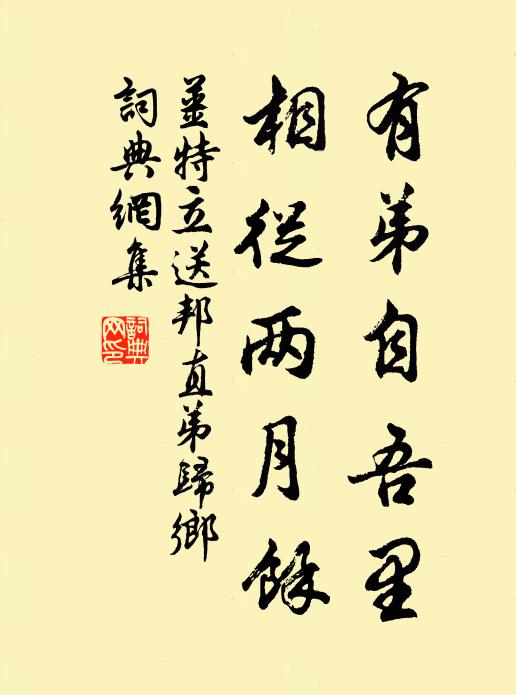 有弟自吾里
相從两月餘
姜特立送邦直弟歸鄉
詞典網集
詞典网印